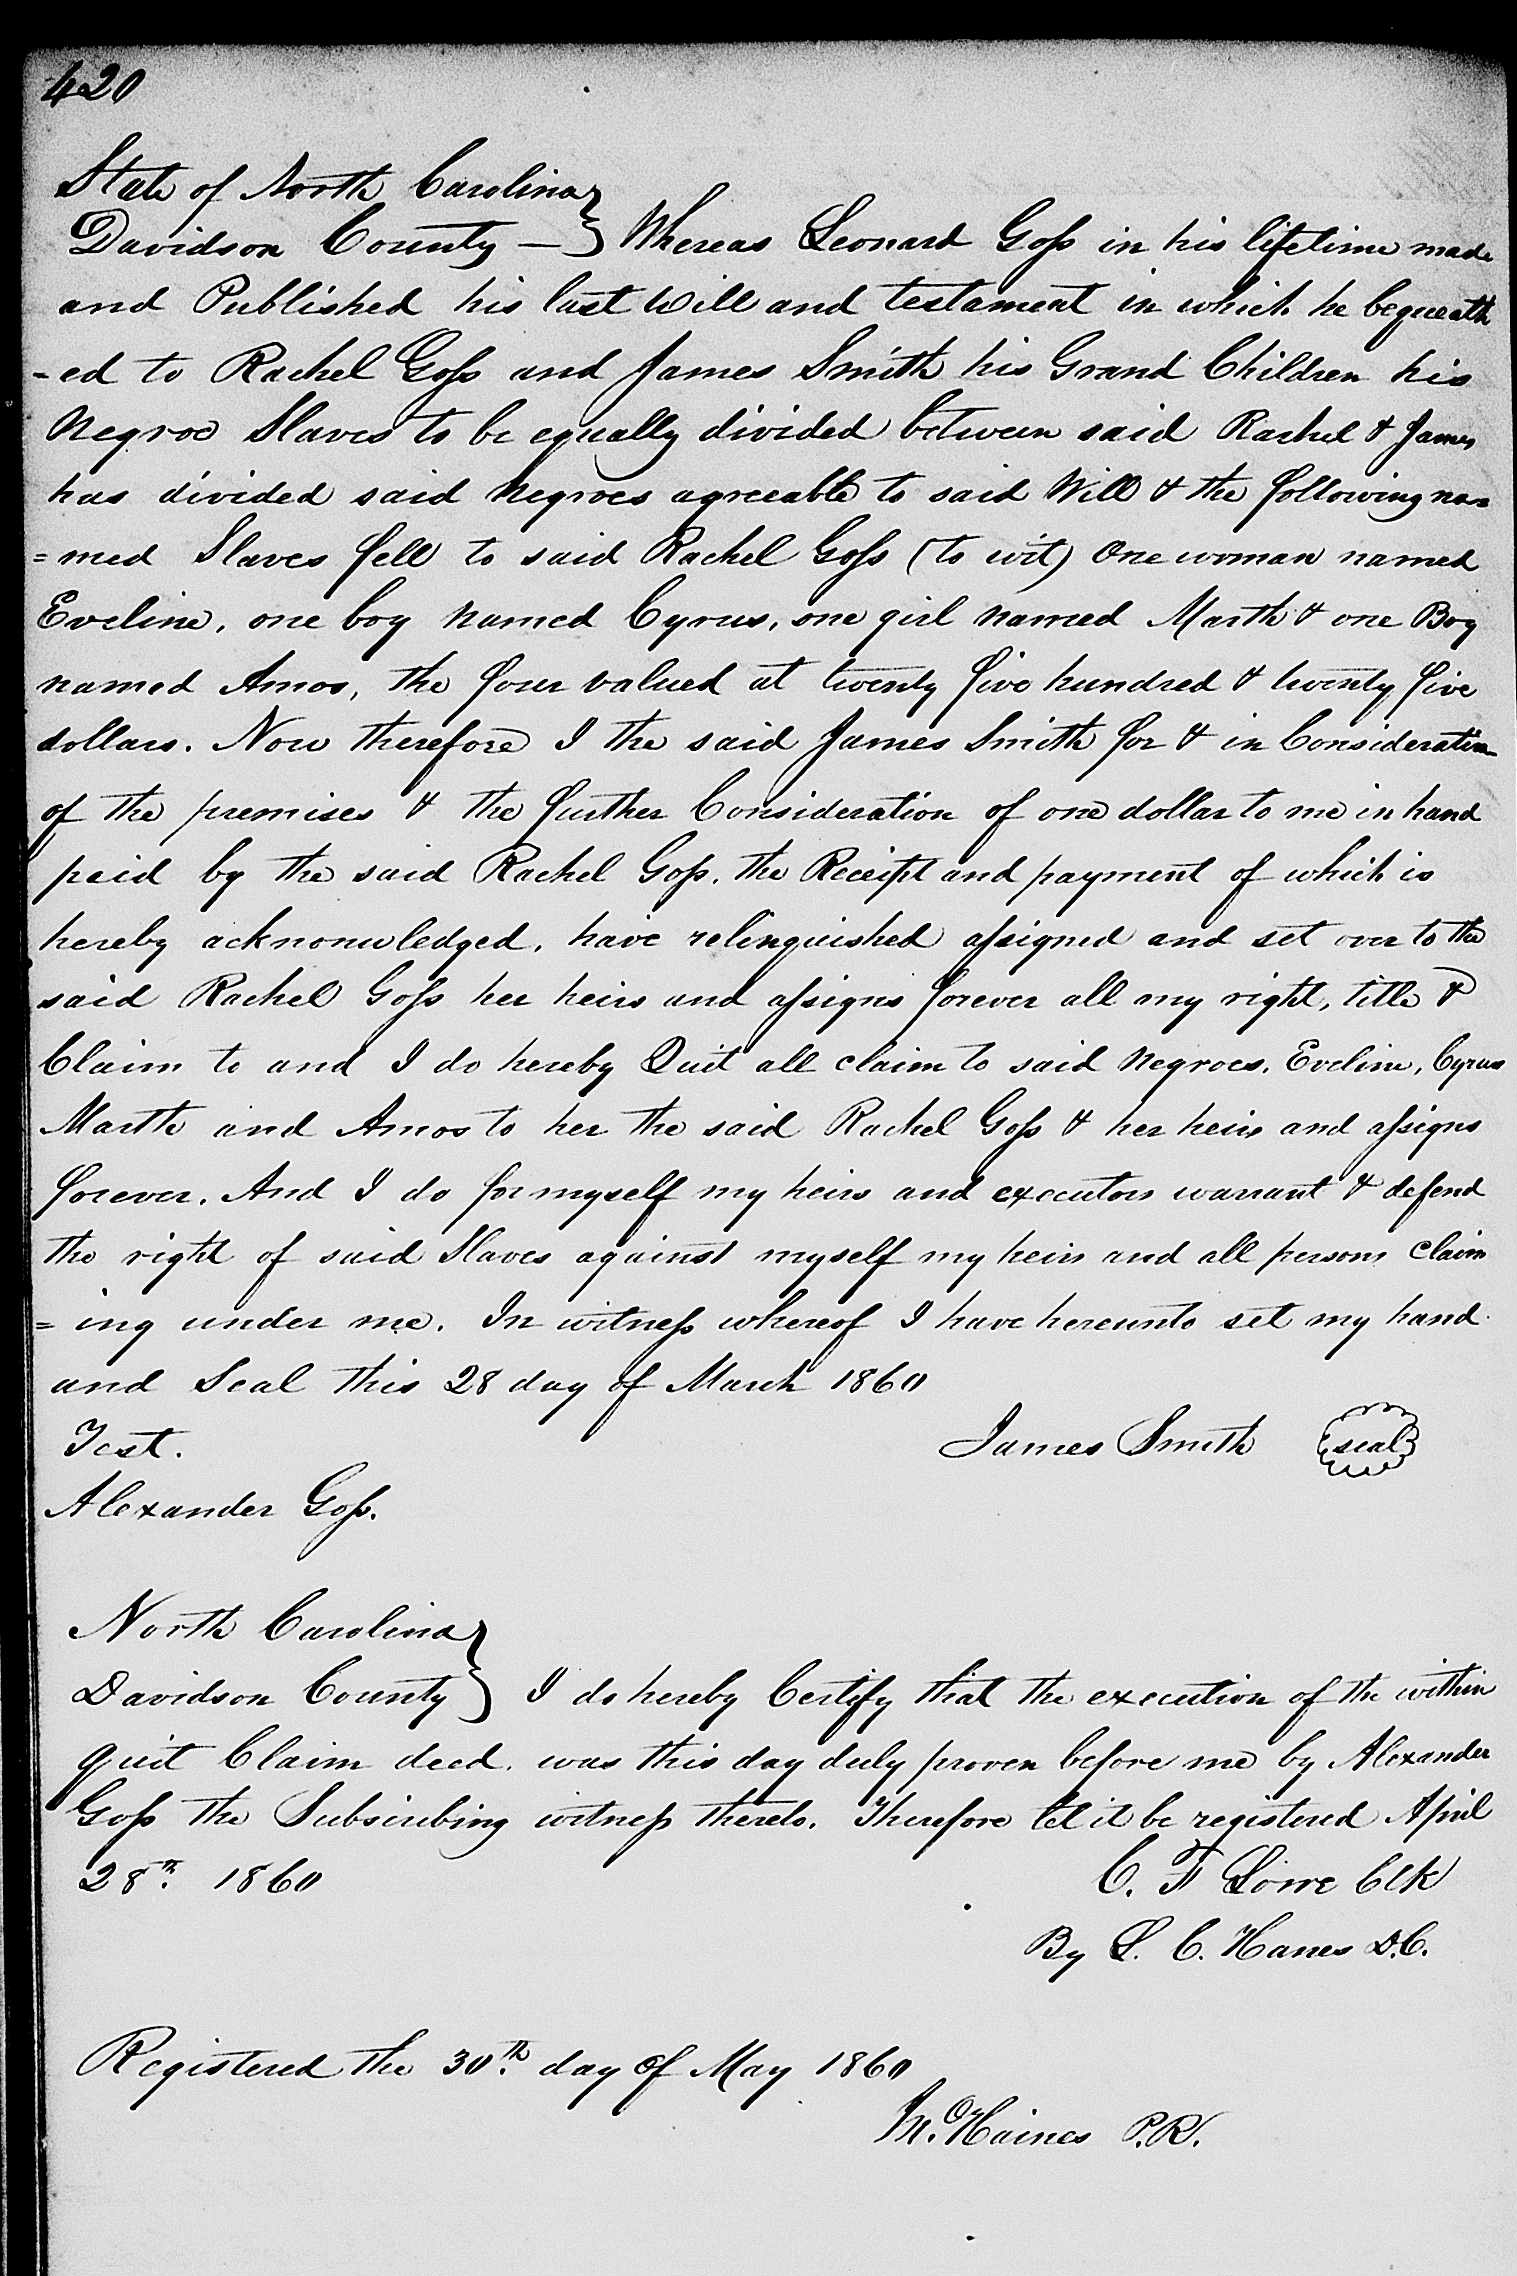 420
State of North Carolina }
Davidson County — } Whereas Leonard Goss in his lifetime made
and Published his last Will and testament in which he bequeath
-ed to Rachel Goss and James Smith his Grand Children his
Negroe Slaves to be equally divided between said Rachel & James
has divided said Negroes agreeable to said Will & the following na=
=med Slaves fell to said Rachel Goss (to wit) One woman named
Eveline, one boy named Cyrus, one girl named Marth & one Boy
named Amos, the four valued at twenty five hundred & twenty five
dollars. Now therefore I the said James Smith for & in Consideration
of the premises & the further Consideration of one dollar to me in hand
paid by the said Rachel Goss, the Receipt and payment of which is
hereby acknonwledged, have relinquished assigned and set over to the
said Rachel Goss her heirs and assigns forever all my right, title &
Claim to and I do hereby Quit all claim to said Negroes, Eveline, Cyrus
Marth and Amos to her the said Rachel Goss & her heirs and assigns
forever. And I do for myself my heirs and executors warrant & defend
the right of said Slaves against myself my heirs and all persons claim
=ing under me. In witness whereof I have hereunto set my hand
and Seal this 28 day of March 1860
Test. James Smith seal
Alexander Goss.
North Carolina }
Davidson County } I do hereby Certify that the execution of the within
quit Claim deed. was this day duly proven before me by Alexander
Goss the Subscribing witness thereto. Therefore let it be registered April
28th. 1860 C. F Lowe Clk
By L. C. Hanes D.C.
Registered the 30th. day of May 1860
Haines P.R.